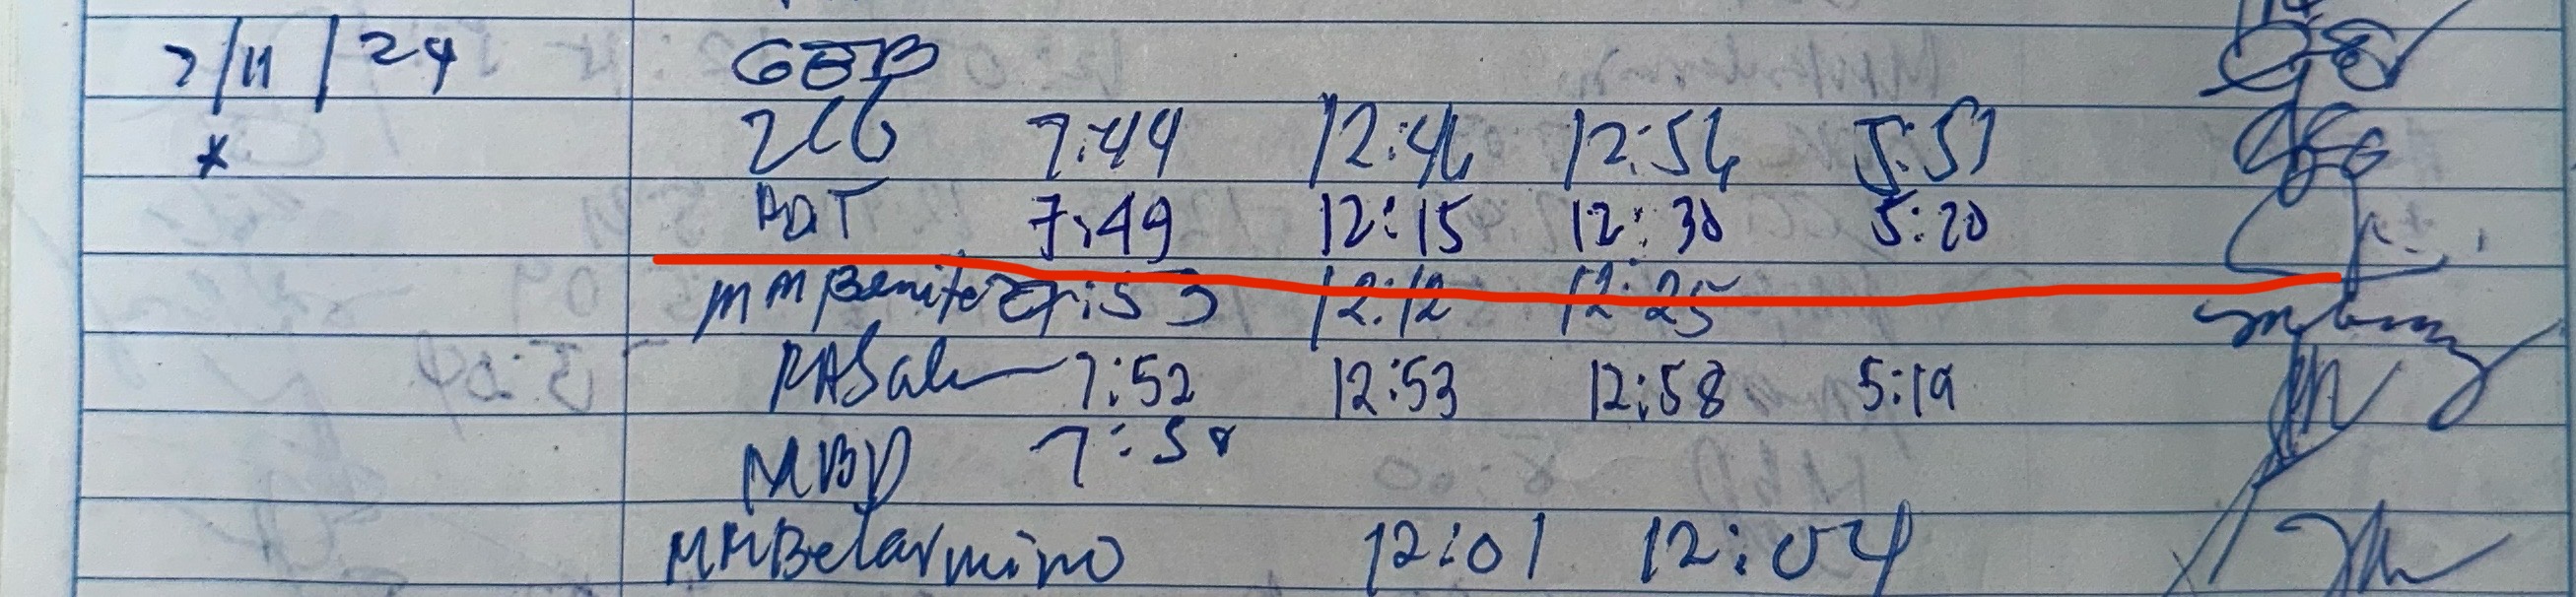 7/11/24 GBB
* 7:44 12:46 12:56 5:51
PDT 7:49 12:15 12:30 5:20
MMBenitez 7:53 12:12 12:25
7:52 12:53 12:58 5:19
MBD 7:58
MMBelarmino 12:01 12:04